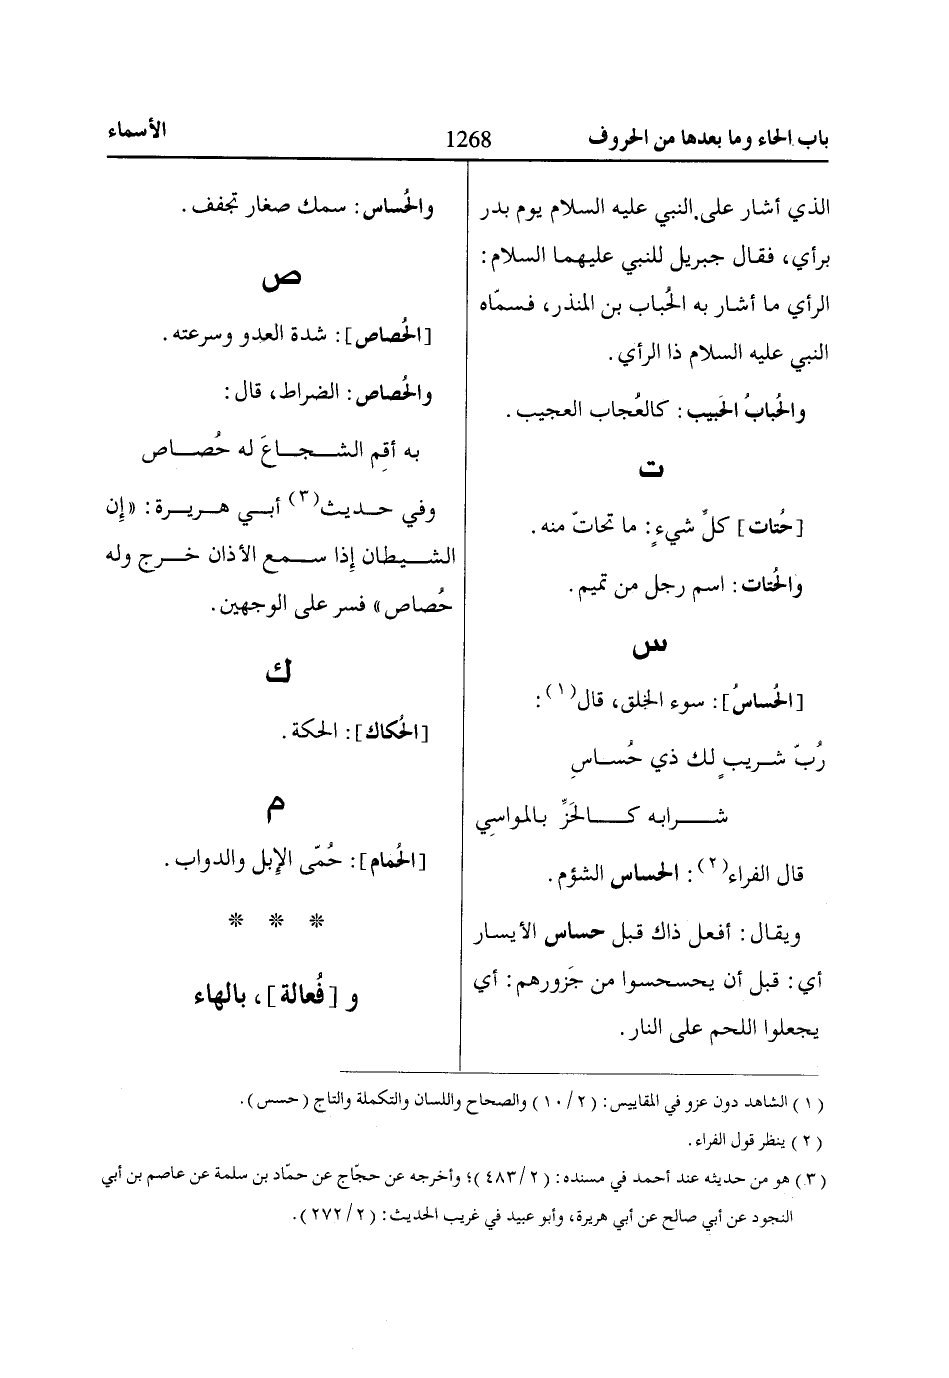 باب الحاء وما بعدها من الحروف 1268 الأسماء
الذي أشار على النبي عليه السلام يوم بدر
برأي، فقال جبريل للنبي عليهما السلام:
الرأي ما أشار به الحُباب بن المنذر، فسمّاه
النبي عليه السلام ذا الرأي.
والحُبابُ الحَبيب: كالعُجاب العجيب.
ت
[حُتات] كلِّ شيءٍ: ما تحاتّ منه.
والحُتات: اسم رجل من تميم.
س
[الحُساسُ]: سوء الخلق، قال(١):
رُبّ شريبٍ لك ذي حُساسِ
شرابه كالحَزِّ بالمواسي
قال الفراء(٢): الحساس الشؤم.
ويقال: أفعل ذاك قبل حساس الأيسار
أي: قبل أن يحسحسوا من جَزورهم: أي
يجعلوا اللحم على النار.
والحُساس: سمك صغار تجفف.
ص
[الحُصاص]: شدة العدو وسرعته.
والحُصاص: الضراط، قال:
به أقِم الشجاعَ له حُصاص
وفي حديث(٣) أبي هريرة: «إن
الشيطان إذا سمع الأذان خرج وله
حُصاص» فسر على الوجهين.
ك
[الحُكاك]: الحكة.
م
[الحُمام]: حُمّى الإبل والدواب.
* * *
و [فُعالة]، بالهاء
(١) الشاهد دون عزو في المقاييس: (٢/١٠) والصحاح واللسان والتكملة والتاج (حسس).
(٢) ينظر قول الفراء.
(٣) هو من حديثه عند أحمد في مسنده: (٢/٤٨٣)؛ وأخرجه عن حجّاج عن حمّاد بن سلمة عن عاصم بن أبي
النجود عن أبي صالح عن أبي هريرة، وأبو عبيد في غريب الحديث: (٢/٢٧٢).